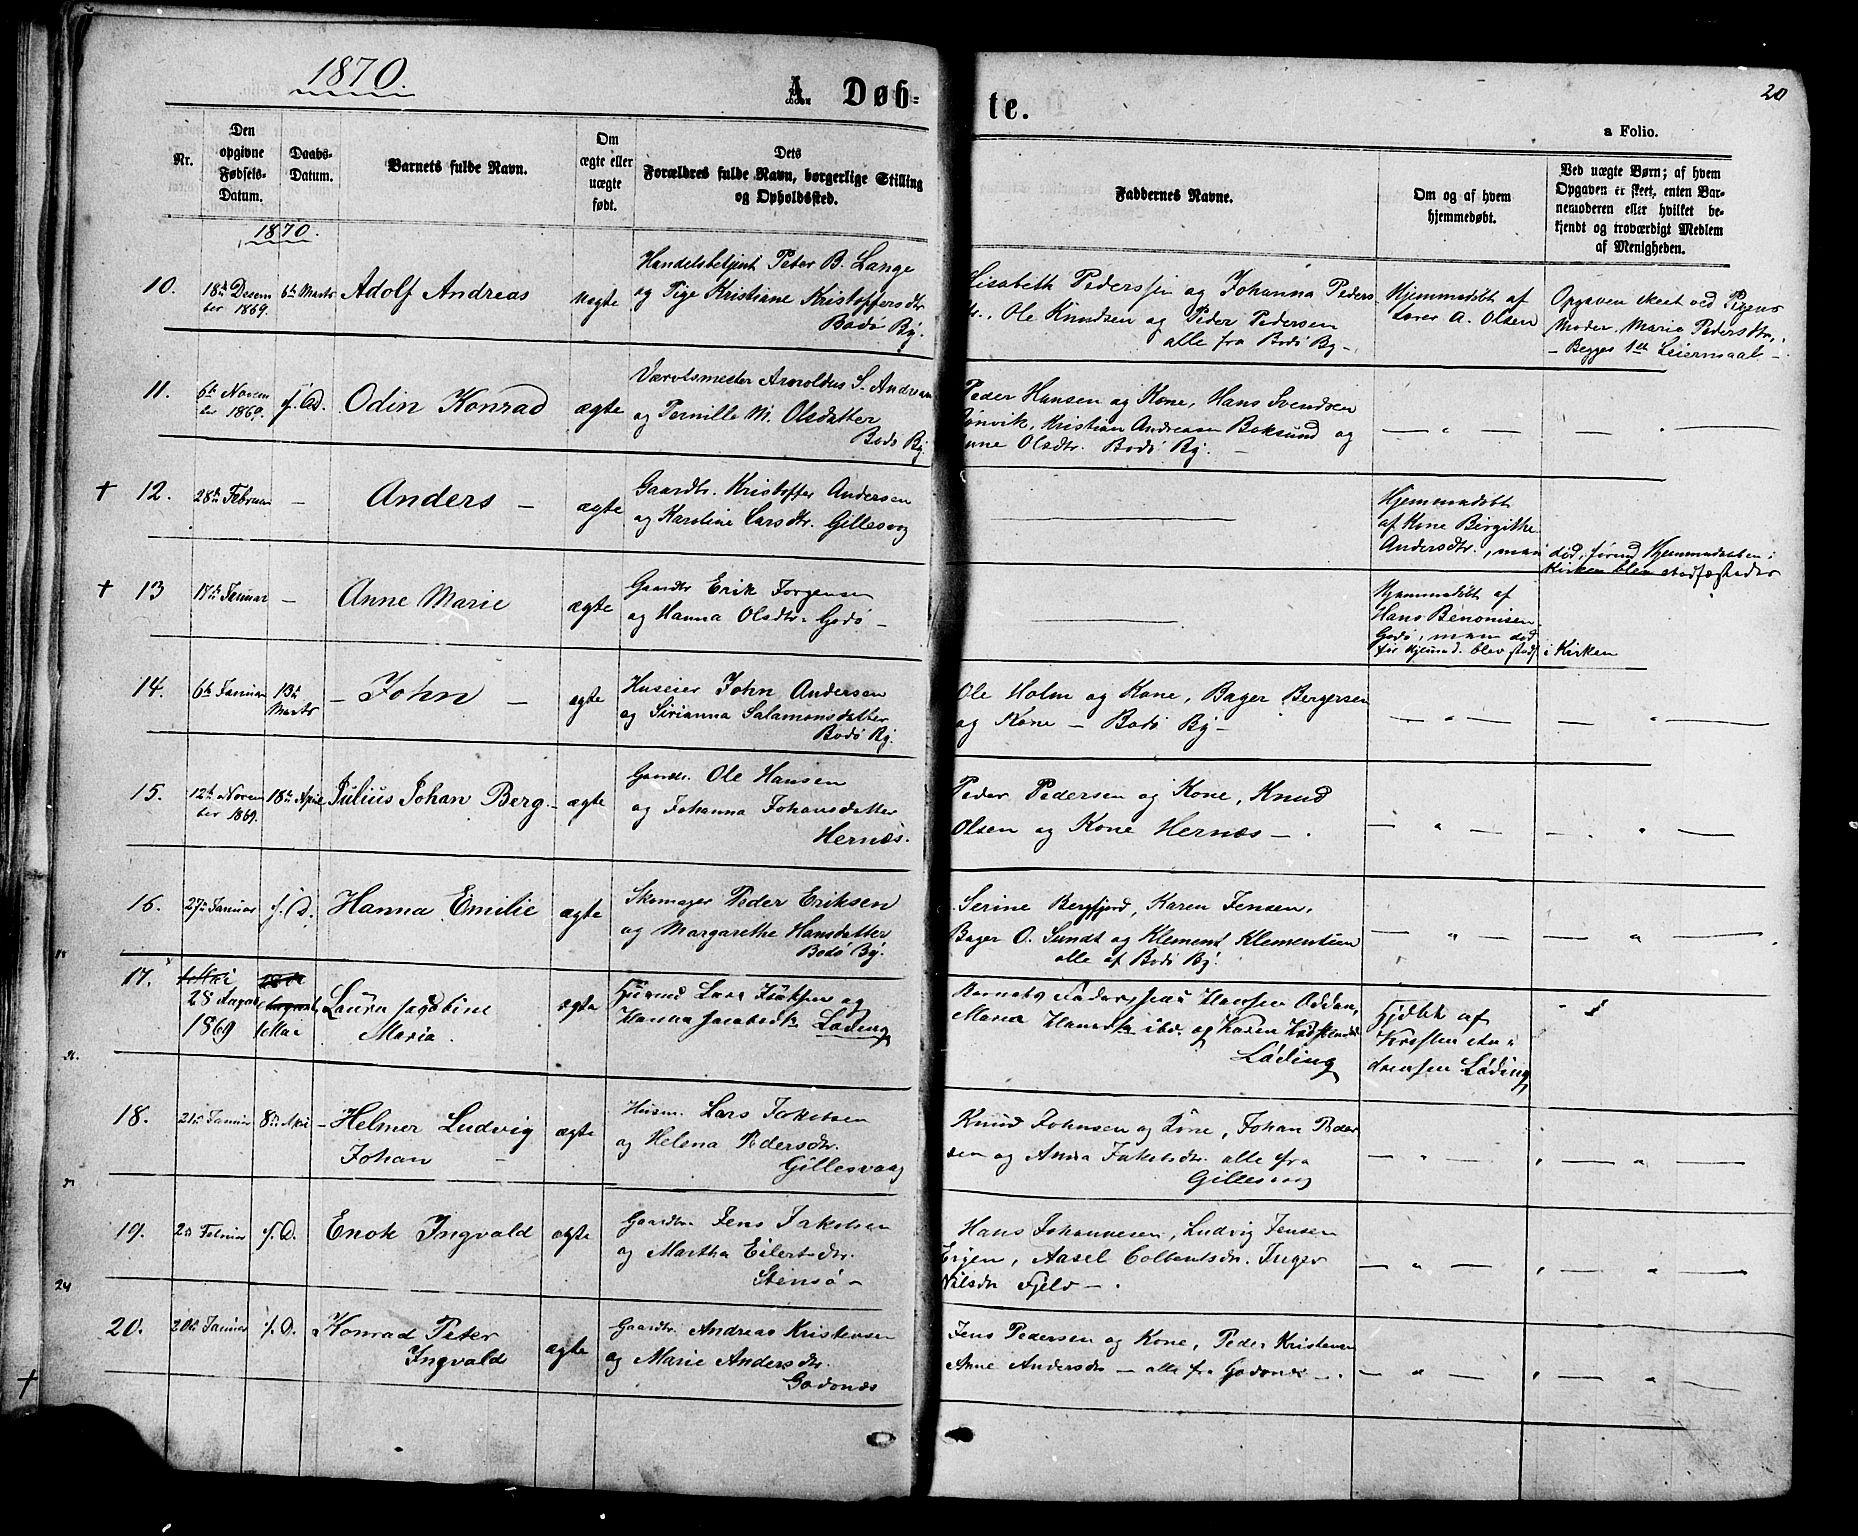 1870.
A Døb=
te.
20
a Folio.
Nr.
Den opgivne Fødsels-Datum.
Daabs-Datum.
Barnets fulde Navn.
Om ægte eller uægte født.
Dets Forældres fulde Navn, borgerlige Stilling og Opholdssted.
Faddernes Navne.
Om og af hvem hjemmedøbt.
Ved uægte Børn; af hvem Opgaven er skeet, enten Barnemoderen eller hvilket bekjendt og troværdigt Medlem af Menigheden.
1870.
10.
18de Desember 1869.
6te Marts
Adolf Andreas
uægte
Handelsbetjent Peter B. Lange
og Pige Kristiane Kristoffersdtr
Bodø By.
Lisabeth Pederssen og Johanna Peders
dtr., Ole Knudsen og Peder Pedersen
alle fra Bodø By –
Hjemmedøbt af
Lærer A. Olsen
Opgaven skeet ved Pigens
Moder, Maria Pedersdtr.
– Begges 1ste Leiermaal –
11.
6te November 1869.
s. D.
Odin Konrad
ægte
Arnoldus S. Andreasen
og Pernille M. Olsdatter
Bodø By
Peder Hansen og Kone, Hans Svendsen
Rønvik, Kristian Andreasen Boksund og
Anne Olsdtr. Bodø By. –
— " —
— " —
+ 12.
28de Februar
–
Anders –
ægte
Gaardbr. Kristoffer Andersen
og Karoline Larsdtr. Gillesvog
—
Hjemmedøbt
af Kone Birgithe
Andersdtr., men
død, førend Hjemmedaaben i
Kirken blev stadfæstedes
+ 13
17de Januar
–
Anne Marie
ægte
Gaardbr Erik Jørgensen
og Hanna Olsdtr. Godø –
—
Hjemmedøbt af
Hans Benonisen
Godø, men død
før Hjemmed. blev stadf. i Kirken
14.
6te Januar
13de Marts
– John –
ægte
Huseier John Andersen
og Sirianna Salamonsdatter
Bodø By.
Ole Holm og Kone, Bager Bergersen
og Kone – Bodø By –
— " —
— " —
15.
12te November 1869.
18de April
Julius Johan Berg –
ægte
Gaardbr. Ole Hansen
og Johanna Johansdatter
Hernæs.
Peder Pedersen og Kone, Knud
Olsen og Kone Hernæs –.
— " —
— " —
16.
27de Januar
s. D.
Hanna Emilie
ægte
Skomager Peder Eriksen
og Margarethe Hansdatter
Bodø By.
Serine Bergfjord, Karen Jensen,
Bager O. Sundt og Klement Klementsen
alle af Bodø By.
— " —
— " —
17.
28 August
1869
Laura Jacobine
Maria.
ægte
Lars Isaksen og
Hanna Jacobsdtr Løding
Barnets Fader, Hansen
Maria Hansdtr ibd. og Karen
Løding
Hjdbt af
Løding
18.
21de Januar
8de Mai
– Helmer Ludvig
Johan –
ægte
Husm. Lars Jakobsen
og Helena Pedersdtr.
Gillesvaag
Knud Johnsen og Kone, Johan Peder
sen og Anna Jakobsdtr. alle fra
Gillesvog
— " —
— " —
19.
2de Februar
s. D.
Enok Ingvald
ægte
Gaardbr. Jens Jakobsen
og Martha Eilertsdtr.
Stensø –
Hans Johannesen, Ludvig Jensen
Aasel Colbentsdtr. Inger
Nilsdtr Fjeld –.
— " —
— " —
24
20.
20de Januar
s. D.
Konrad Peter
Ingvald
ægte
Gaardbr. Andreas Kristensen
og Marie Andersdtr.
Godønes
Jens Pedersen og Kone, Peder Kristensen
Anne Andersdtr – alle fra Godønes –.
— " —
— " —
+